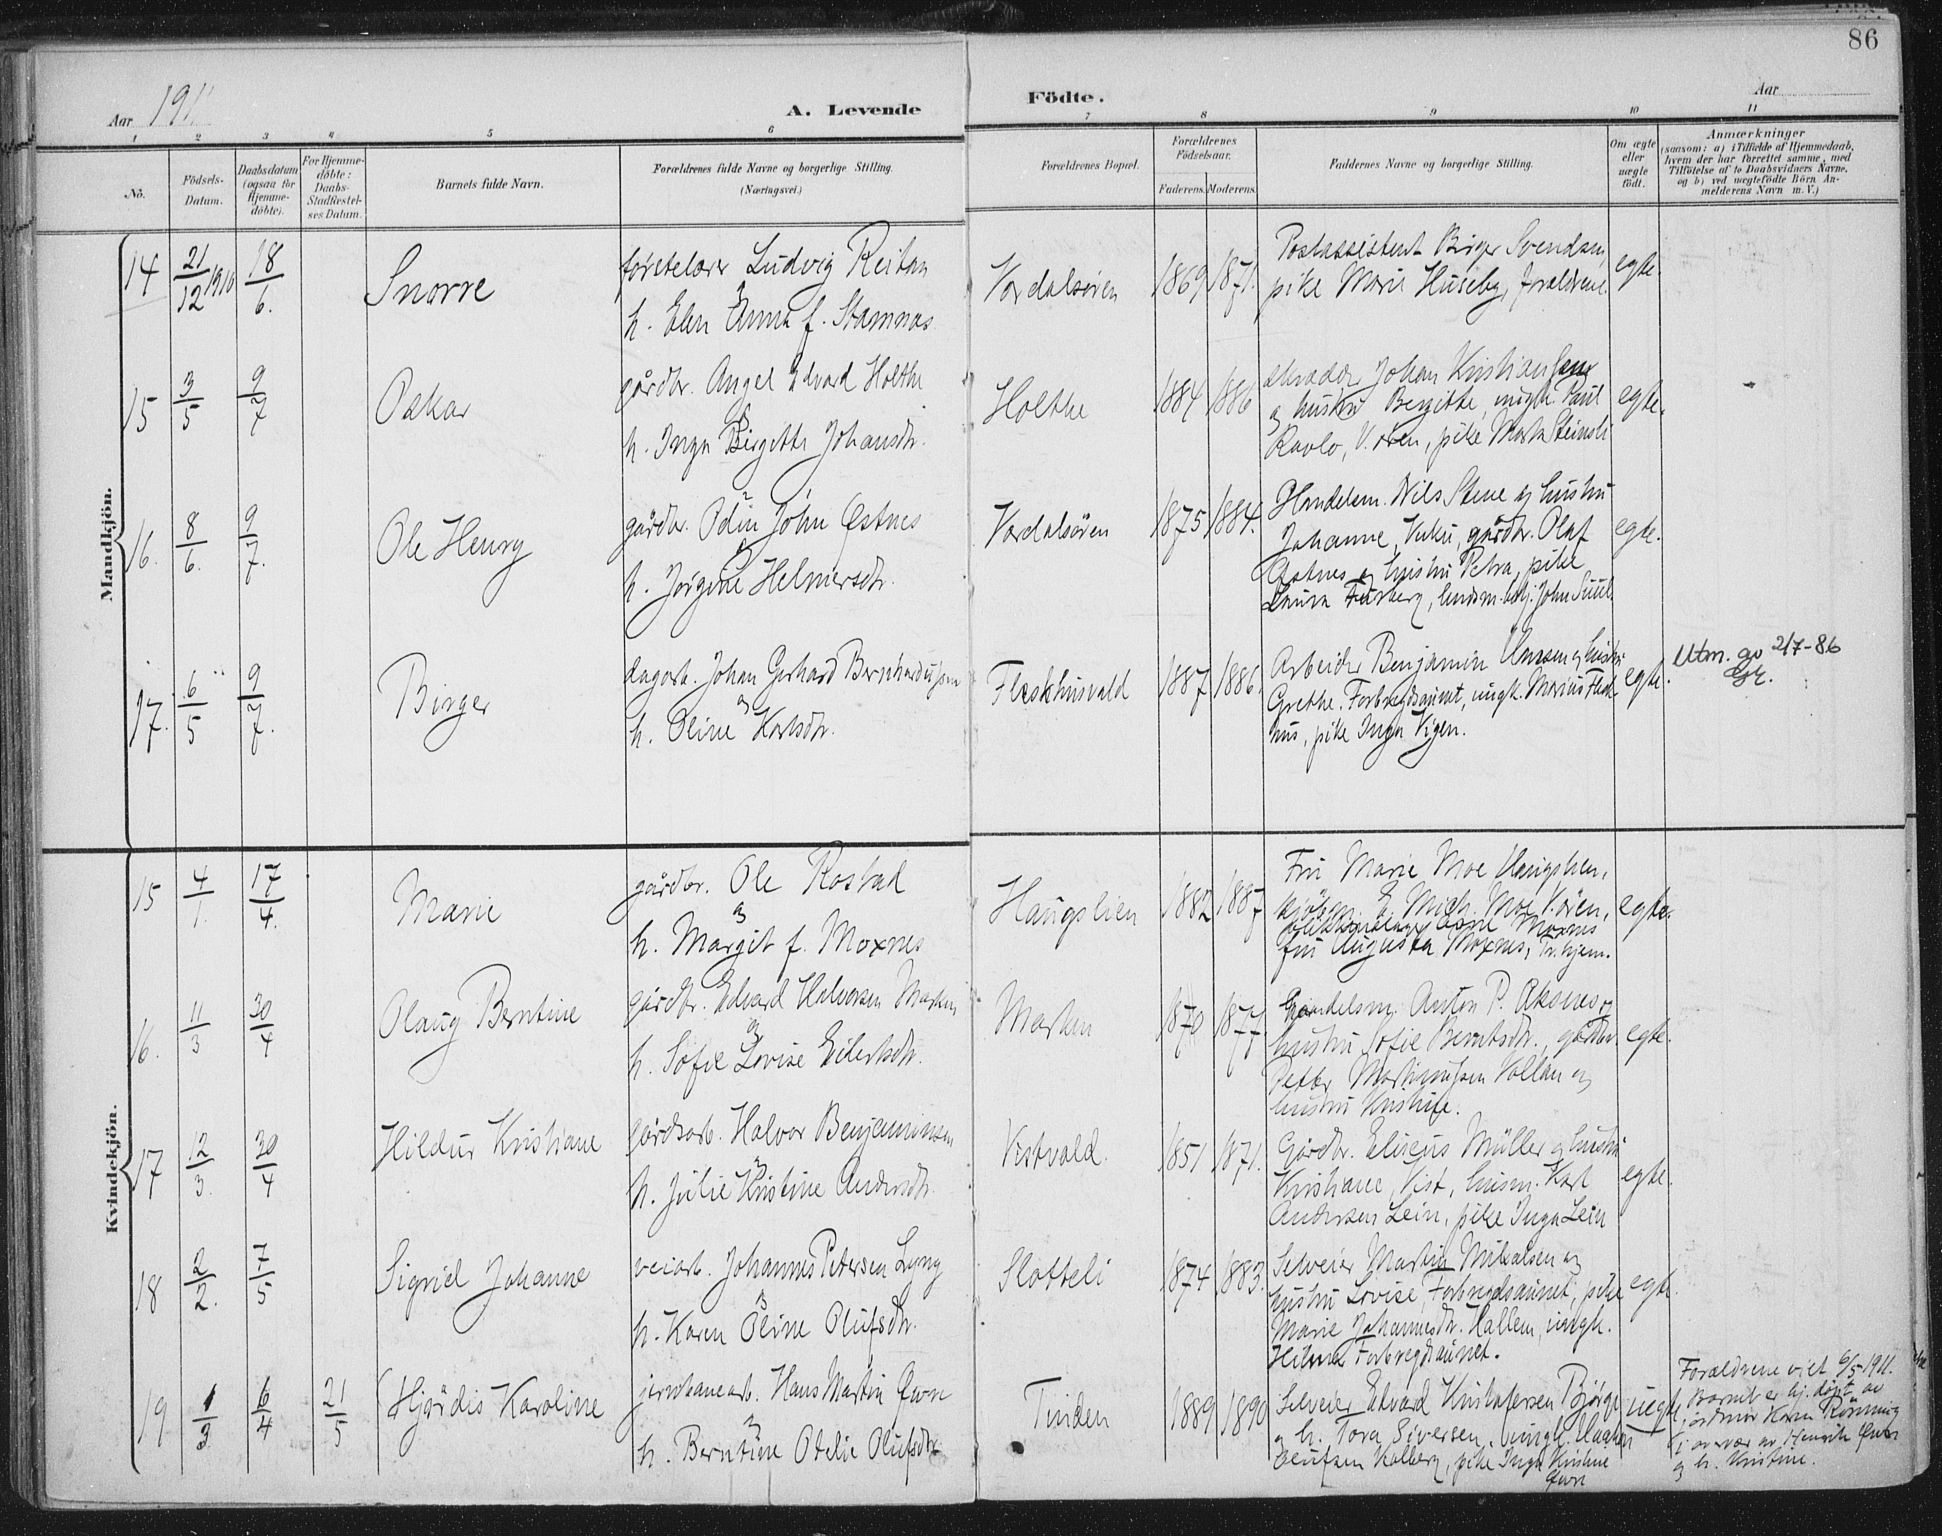 86
Aar 1911
A. Levende
Födte.
Aar
1 2 3 4 5 6 7 8 9 10 11
No.
Födsels-
Datum.
Daabsdatum
(ogsaa for
Hjemme-
döbte).
For Hjemme-
döbte:
Daabs-
Stadfæstel-
ses Datum.
Barnets fulde Navn.
Forældrenes fulde Navne og borgerlige Stilling.
(Næringsvei.)
Forældrenes Bopæl.
Forældrenes
Födselsaar.
Faderens. Moderens.
Faddernes Navne og borgerlige Stilling.
Om ægte
eller
uægte
födt.
Anmærkninger
(saasom: a) i Tilfælde af Hjemmedaab,
hvem der har forrettet samme, med
Tilföielse af to Daabsvidners Navne,
og b) ved uægtefödte Börn An-
melderens Navn m. V.)
Mandkjön.
14 21/12 1910 18/6. Snorre
förstelærer Ludvig Reitan
og
h. Elen Anna f. Stamnas
Værdalsören 1869 1871.
Postassistent Birger Svendsen,
pike Marie Huseby, forældrene
egte.
15 3/5 9/7 Oskar
gårdbr. Angel Edvard Holthe
og
h. Inga Birgitte Johansdr.
Holthe 1884 1886
skrædder Johan Kristiansen
og hustru Bergitte, ungk. Paul
Ravlo, V.ören, pike Marta Steinsli
egte.
16. 8/6. 9/7. Ole Henry
gårdbr. Odin John Østnes
og
h. Jörgine Helmersdr.
Værdalsören 1875 1884.
Handelsm. Nils Stene og hustru
Johanne, Vuku, gårdbr. Olaf
Østnes og hustru Petra, pike
Laura Furberg, lendsm.betj. John Suul.
egte.
17. 6/5 9/7. Birger
dagarb. Johan Gerhard Bernhardussen
og
h. Oline Karlsdr.
Fleskhusvald 1887 1886.
Arbeider Benjamin Hansen og hustru
Grethe, Forbregdsaunet, ungk. Marius Flesk-
hus, pike Inga Vigen.
egte.
Utm. av 2/7-86
Kvindekjön.
15 4/1. 17/4. Marie
gårdbr. Ole Rostad
og
h. Margit f. Moxnes
Haugslien 1882 1887
Fru Marie Moe Haugslien,
kjöbm. E. Mich. Moe V.ören,
Arne Moxnes
fru Augusta Moxnes, Tr.hjem.
egte.
16. 11/3 30/4 Olaug Berntine
gårdbr. Edvard Halvorsen Marken
og
h. Sofie Lovise Eilertsdr.
Marken 1870 1877
Handelsm. Anton P. Aksnes og
hustru Sofie Berntsdr., gårdbr.
Petter Martinussen Vollan og
hustru Kristine.
egte.
17 12/3. 30/4 Hildur Kristiane
gårdsarb. Halvor Benjaminsen
og
h. Julie Kristine Andersdr.
Vistvald. 1851 1871.
Gårdbr. Eliseus Müller og hustru
Kristiane, Vist, husm. Karl
Andersen Lein, pike Inga Lein
egte.
18 2/2. 7/5 Sigrid Johanne
veiarb. Johannes Petersen Lyng
og
h. Karen Oline Olufsdr.
Slotteli 1874 1883.
Selveier Martin Mikalsen og
hustru Lovise, Forbregdsaunet, pike
Marie Johannesdr. Hallem, ungk.
Hilmar Forbregdsaunet.
egte.
19 1/3 6/4 21/5 Hjördis Karoline
jernbanearb. Hans Martin Kvern
og
h. Berntine Otelie Olufsdr.
Tinden 1889 1890
Selveier Edvard Kristofersen Björge
og h. Tora Siversen, ungk. Haakon
Olufsen Valberg, pike Inga Kristine
uegte,
Forældrene viet 6/5-1911.
Barnet er hj. döpt av
jordmor Karen Rönning
i overvær av Henrik
og h. Kristine.